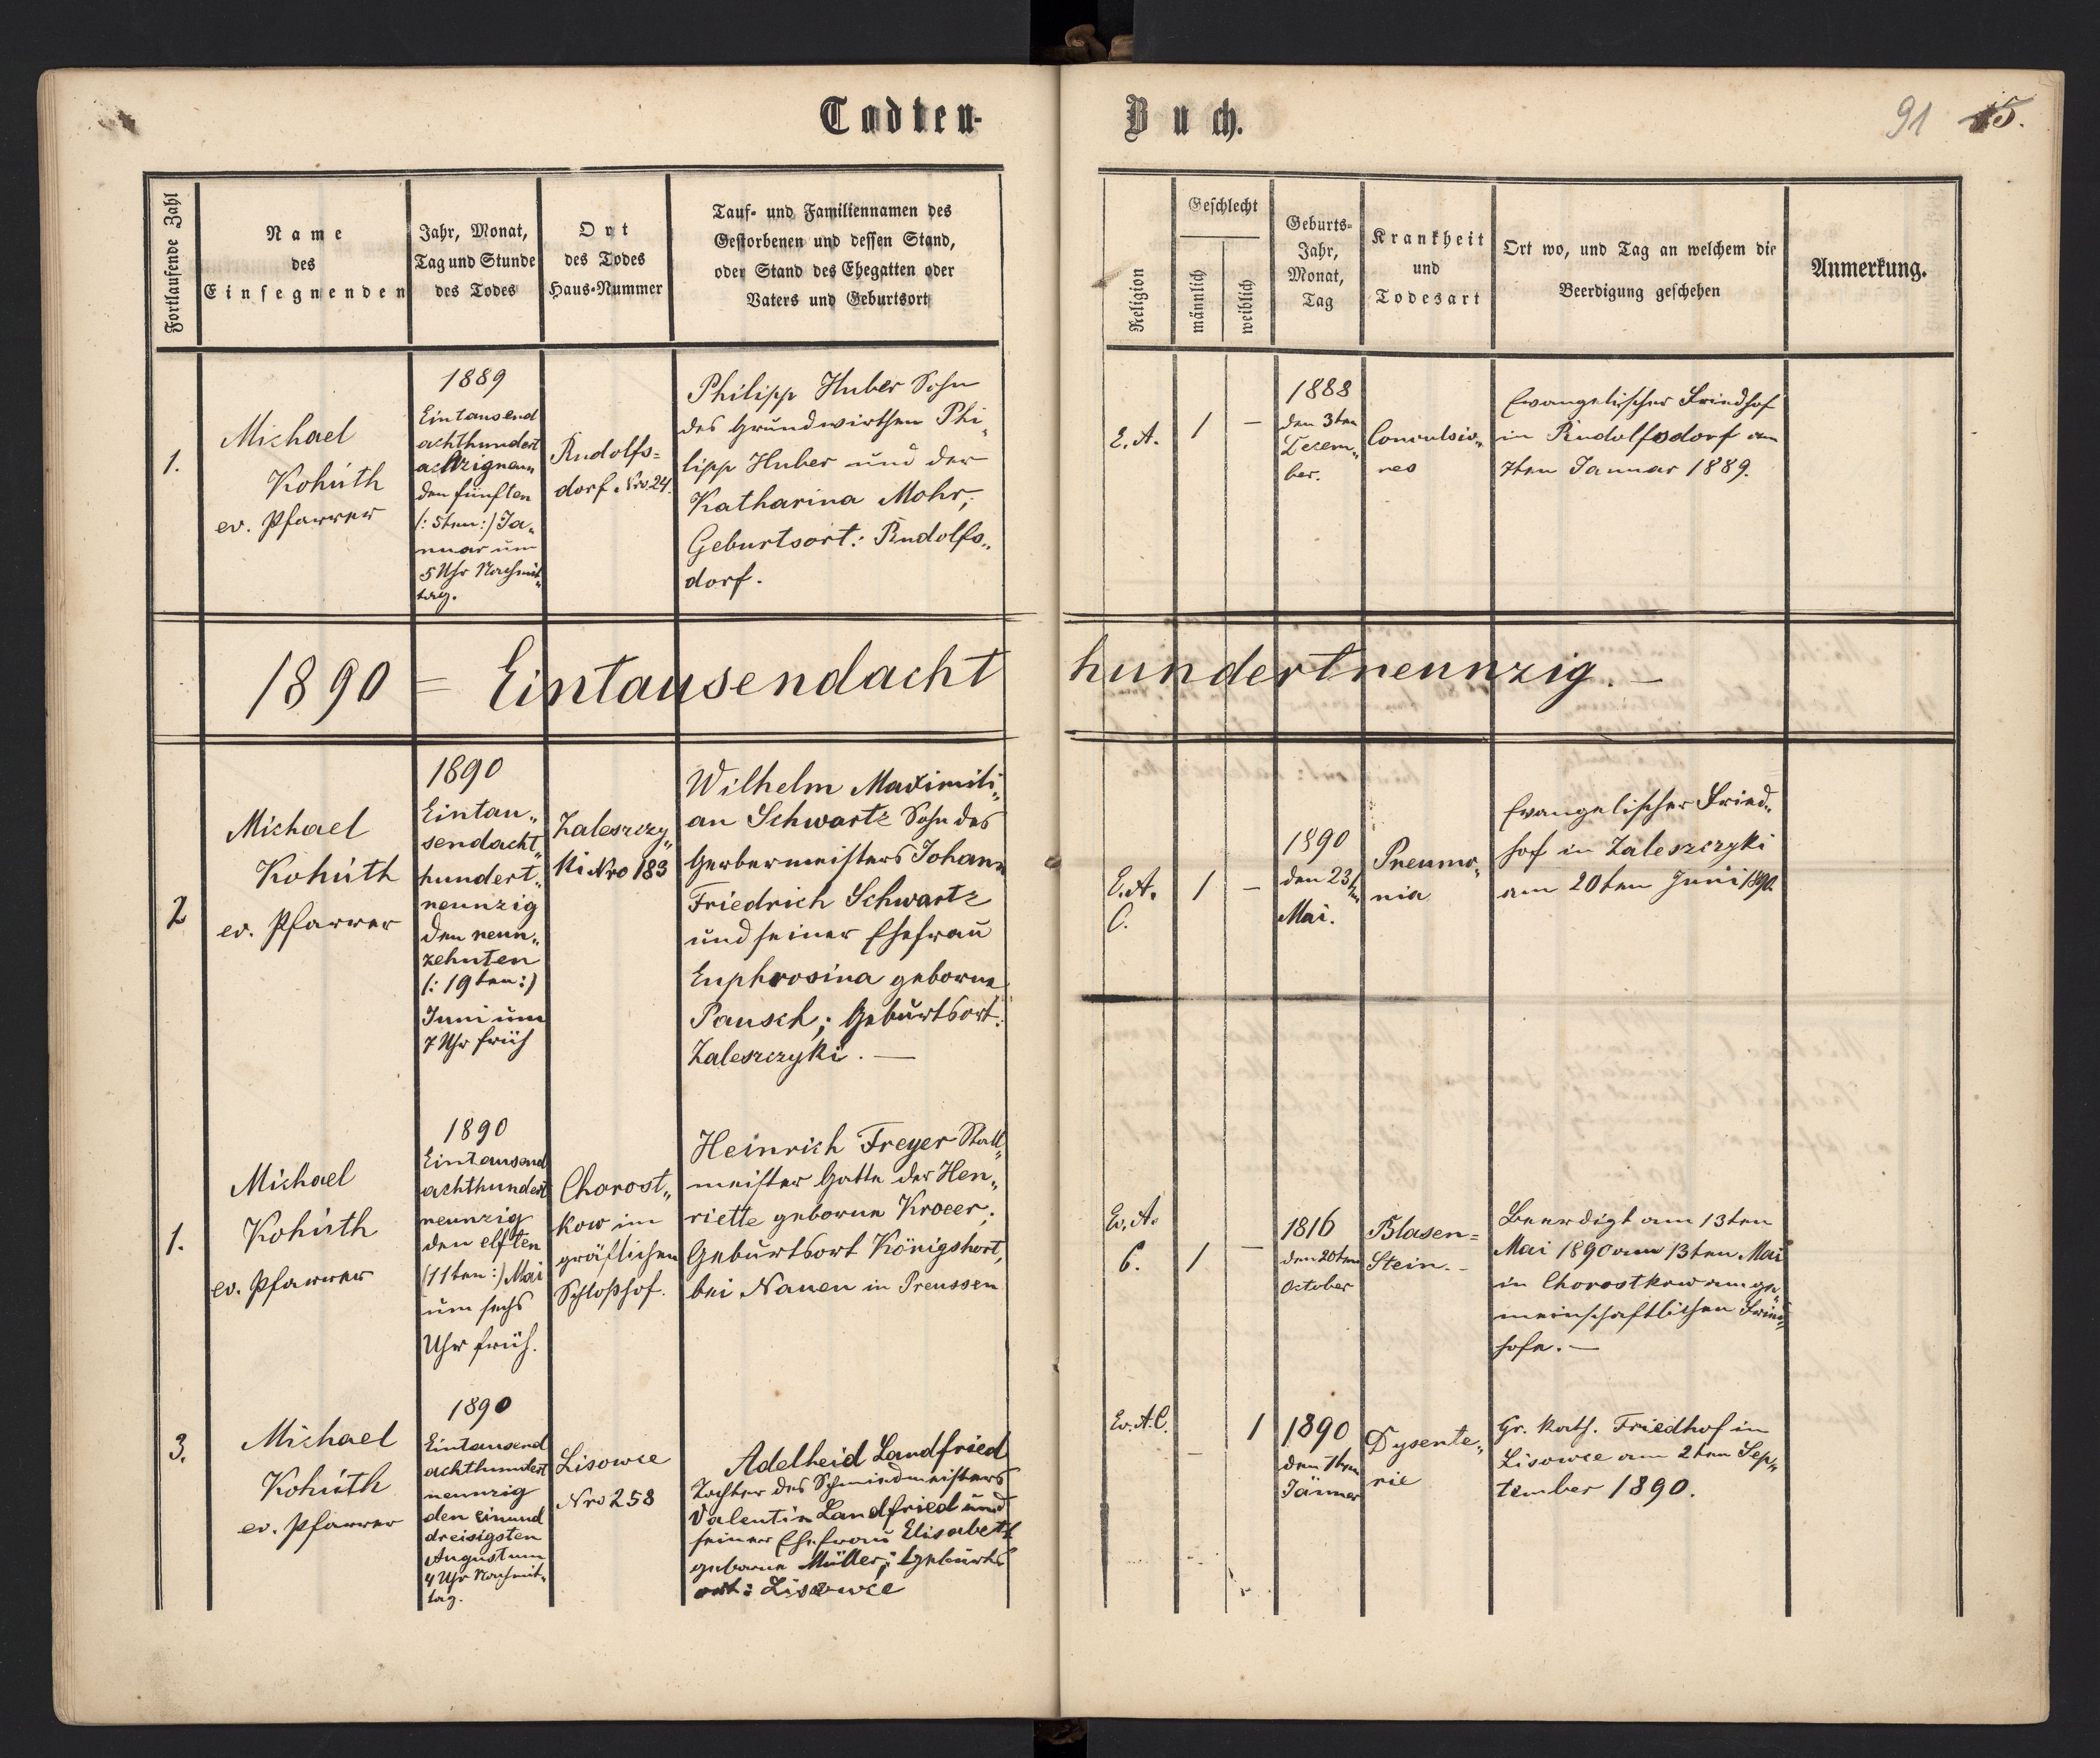 Todten-
Buch.
91 15.
Fortlaufende Zahl
Name
des
Einsegnenden
Jahr, Monat,
Tag und Stunde
des Todes
Ort
des Todes
Haus-Nummer
Tauf- und Familiennamen des
Gestorbenen und dessen Stand,
oder Stand des Ehegatten oder
Vaters und Geburtsort
Religion
Geschlecht
männlich
weiblich
Geburts-
Jahr,
Monat,
Tag
Krankheit
und
Todesart
Ort wo, und Tag an welchem die
Beerdigung geschehen
Anmerkung.
1.
Michael
Kohúth
ev. Pfarrer
1889
Eintausend
achthundert
achtzigneun
den fünften
(: 5ten :) Ja„
nuar um
5 Uhr Nachmit„
tag.
Rudolfs=
dorf Nro. 24.
Philipp Huber Sohn
des Grundwirthen Phi„
lipp Huber und der
Katharina Mohr;
Geburtsort: Rudolfs„
dorf.
E. A.
1
—
1888
den 3ten
Decem„
ber.
Convulsio„
nes
Evangelischer Friedhof
in Rudolfsdorf am
7ten Januar 1889.
1890 = Eintausendacht
hundertneunzig. —
2
Michael
Kohúth
ev. Pfarrer
1890
Eintau„
sendacht„
hundert„
neunzig
den neun„
zehnten
(: 19ten :)
Juni um
7 Uhr früh
Zaleszczy„
ki Nro 183
Wilhelm Maximili„
an Schwartz Sohn des
Gerbermeisters Johann
Friedrich Schwartz
und seiner Ehefrau
Euphrosina geborne
Pausch; Geburtsort:
Zaleszczyki. —
E. A.
C.
1
—
1890
den 23ten
Mai.
Pneumo„
nia
Evangelischer Fried„
hof in Zaleszczyki
am 20ten Juni 1890.
1.
Michael
Kohúth
ev. Pfarrer
1890
Eintausend
achthundert
neunzig
den elften
(11ten :) Mai
um sechs
Uhr früh.
Chorost„
kow im
gräflichen
Schloßhof.
Heinrich Freyer Stall„
meister Gatte der Hen„
riette geborne Kroeer;
Geburtsort Königshort,
bei Nauen in Preussen
Ev. A.
C.
1
—
1816
den 20ten
October
Blasen=
Stein. -
Beerdigt am 13ten
Mai 1890 am 13ten Mai
in Chorostkow am ge„
meinschaftlichen Fried„
hofe. —
3.
Michael
Kohúth
ev. Pfarrer
1890
Eintausend
achthundert
neunzig
den einund
dreisigsten
August um
4 Uhr Nachmit„
tag.
Lisowce
Nro 258
Adelheid Landfried
Tochter des Schmiedmeisters
Valentin Landfried und
seiner Ehefrau Elisabeth
geborne Müller; Geburts
ort: Lisowce
Ev. A. C.
—
1
1890
den 1ten
Jänner
Dysente„
rie
Gr. Kath. Friedhof in
Lisowce am 2ten Sep„
tember 1890.